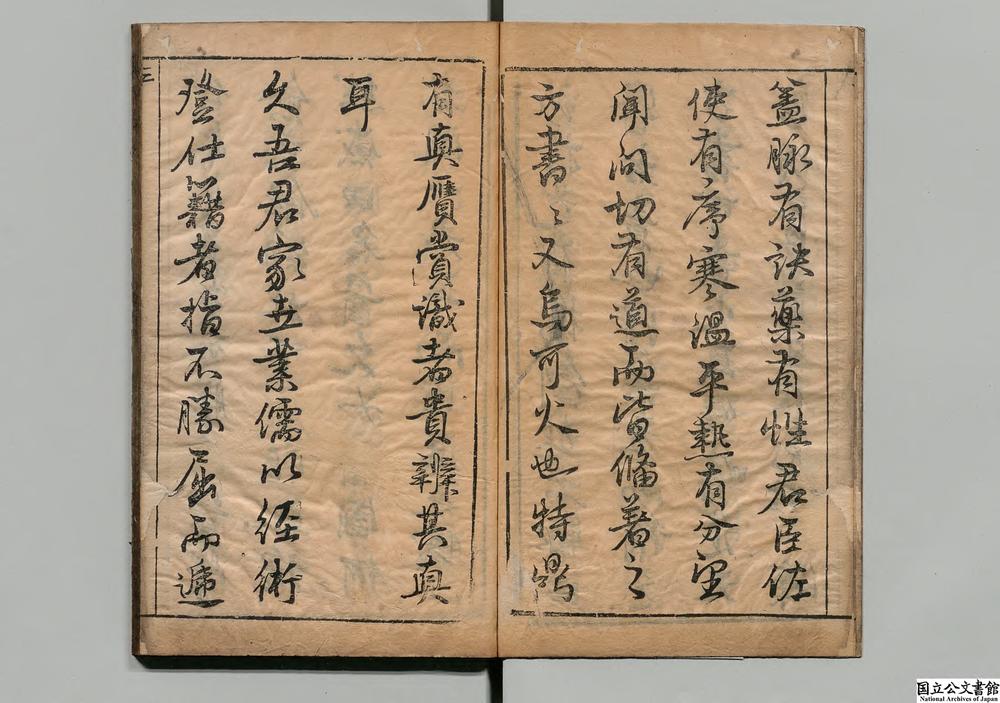 蓋脉有訣藥有性君臣佐
使有序寒溫平熱有分望
聞问切有道而皆偹著之
方書〻又烏可火也特鼎
有真贗賞識者貴辨其真
耳
久吾君家世業儒以经術
登仕籍者指不勝屈而遞
三
国立公文書館
National Archives of Japan